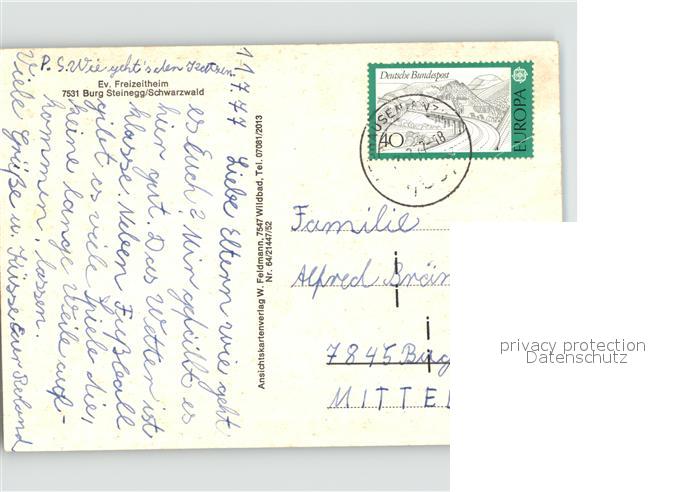 P.S. Wie geht's den Katzen
Ev. Freizeitheim
7531 Burg Steinegg/Schwarzwald
11.7.77 Liebe Eltern wie geht
es Euch? Mir gefällt es
hier gut. Das Wetter ist
klasse. Neben Fußball
gibt es viele Spiele die,
keine lange Weile auf-
kommen, lassen.
Viele Grüße u. Küsse Euer Roland
Ansichtskartenverlag W. Feldmann, 7547 Wildbad, Tel. 07081/2013
Nr. 64/21447/52
Deutsche Bundespost
40
EUROPA
Familie
Alfred
7845
MITTEL
privacy protection
Datenschutz